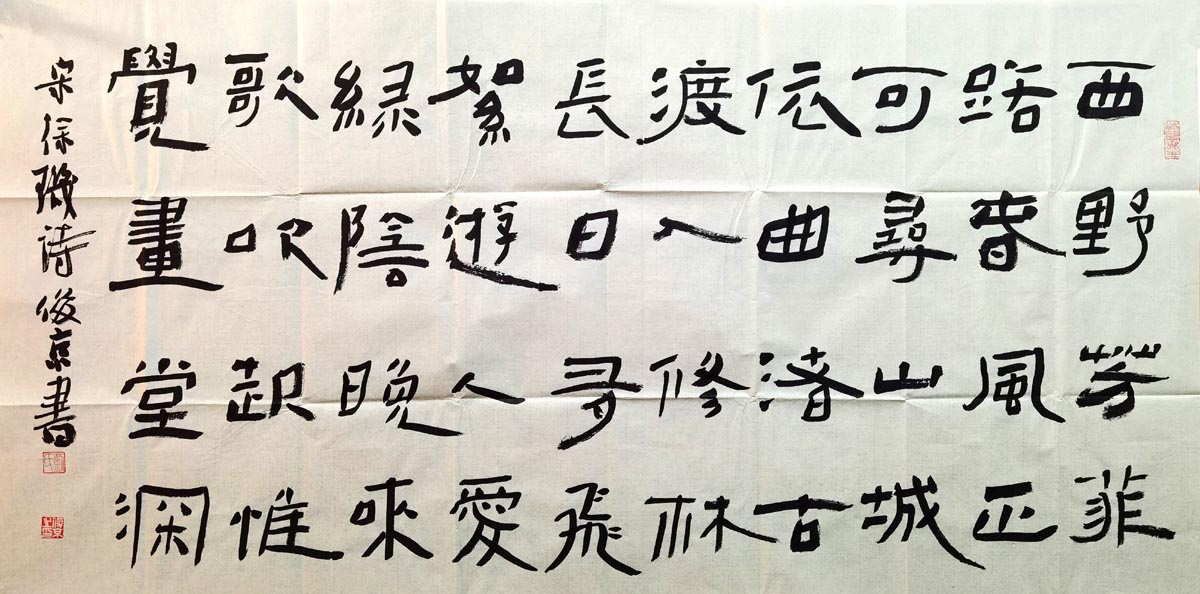 西野芳菲
路春風正
可尋山城
依曲渚古
渡入修林
長日多飛
絮遊人愛
緑陰晚來
歌吹起惟
覺畫堂深
宋徐璣詩 俊京書